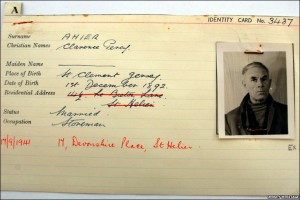 A
IDENTITY CARD No. 3437
Surname AHIER
Christian Names Clarence Percy
Maiden Name
Place of Birth St. Clement Jersey
Date of Birth 1st December 1892
Residential Address
St. Helier
Status Married
Occupation Storeman
17/9/1941 Devonshire Place, St Helier